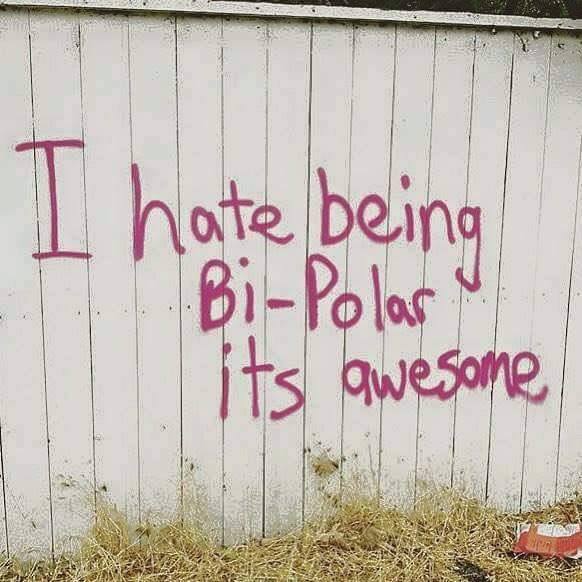 I hate being
Bi-Polar
its awesome